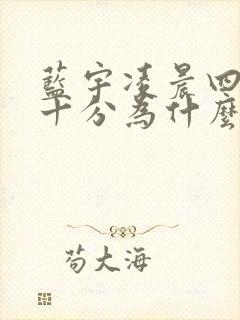 藍宇凌晨四
十分為什麼
苟大海